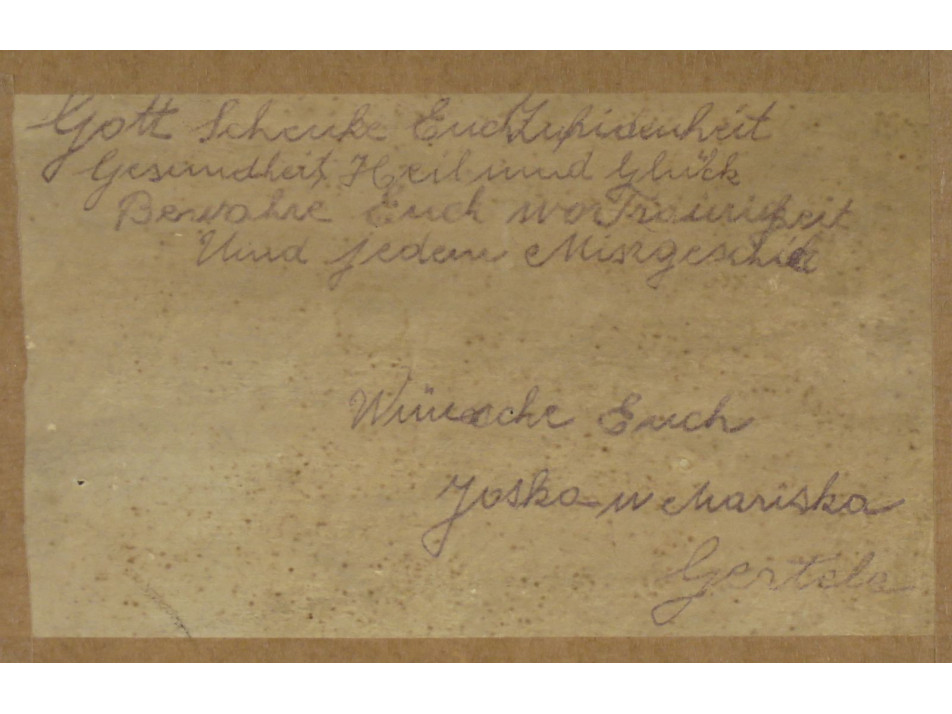 Gott Schenke Euch Zufridenheit
Gesundheit, Heil und Glück
Bewahre Euch vor Traurigkeit
Und jedem Misgeschick
Wünsche Euch
Joska u Mariska